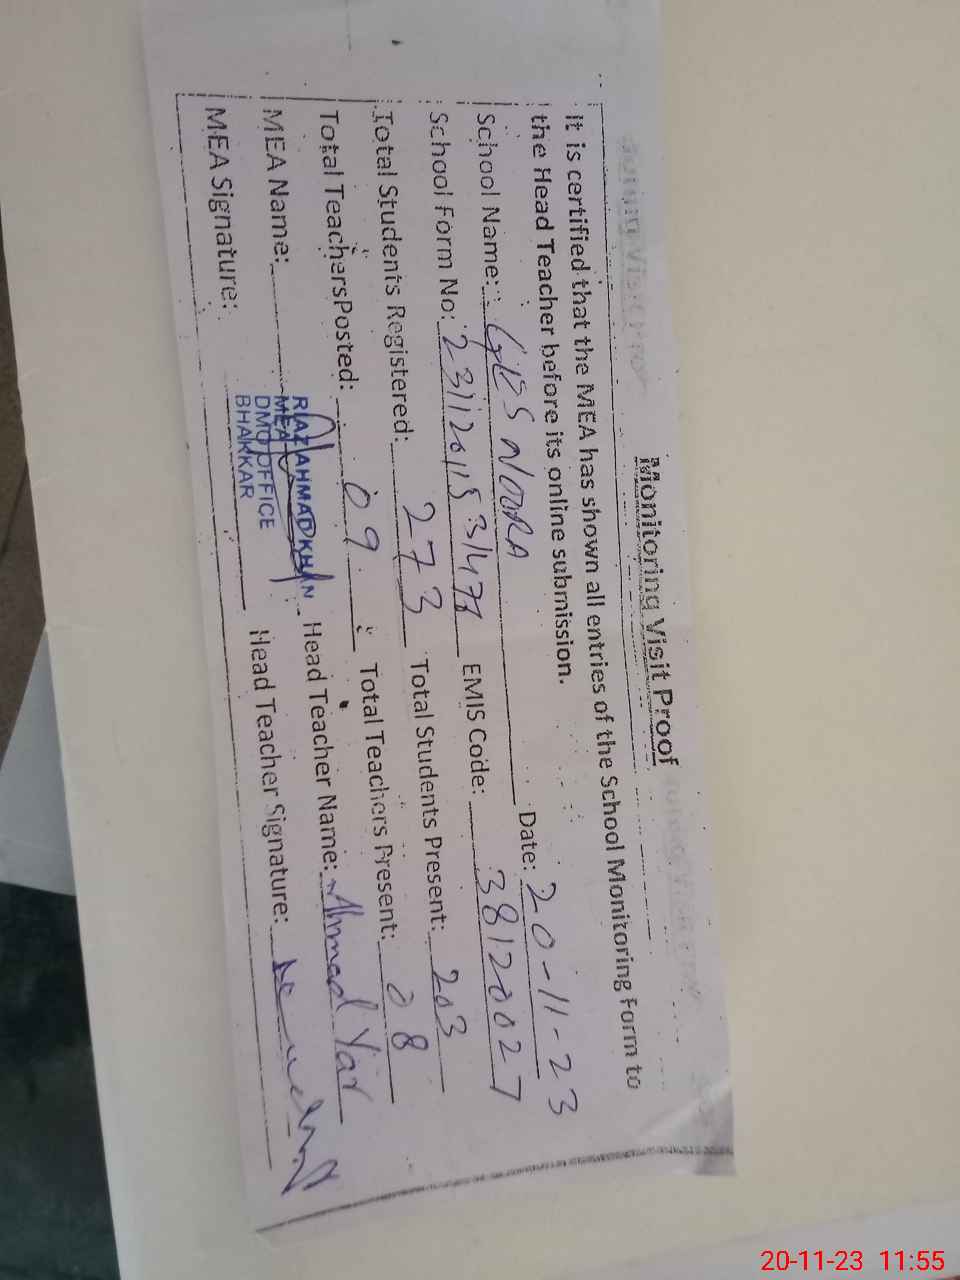 Monitoring Visit Proof
It is certified that the MEA has shown all entries of the School Monitoring Form to
the Head Teacher before its online submission.
School Name: GES NOORA Date: 20-11-23
School Form No: EMIS Code: 38120027
Total Students Registered: 273 Total Students Present: 203
Total Teachers Posted: 09 Total Teachers Present: 08
MEA Name: RIAZ AHMAD KHAN Head Teacher Name: Ahmad Yar
MEA
DMO OFFICE
BHAKKAR
MEA Signature: Head Teacher Signature:
20-11-23 11:55